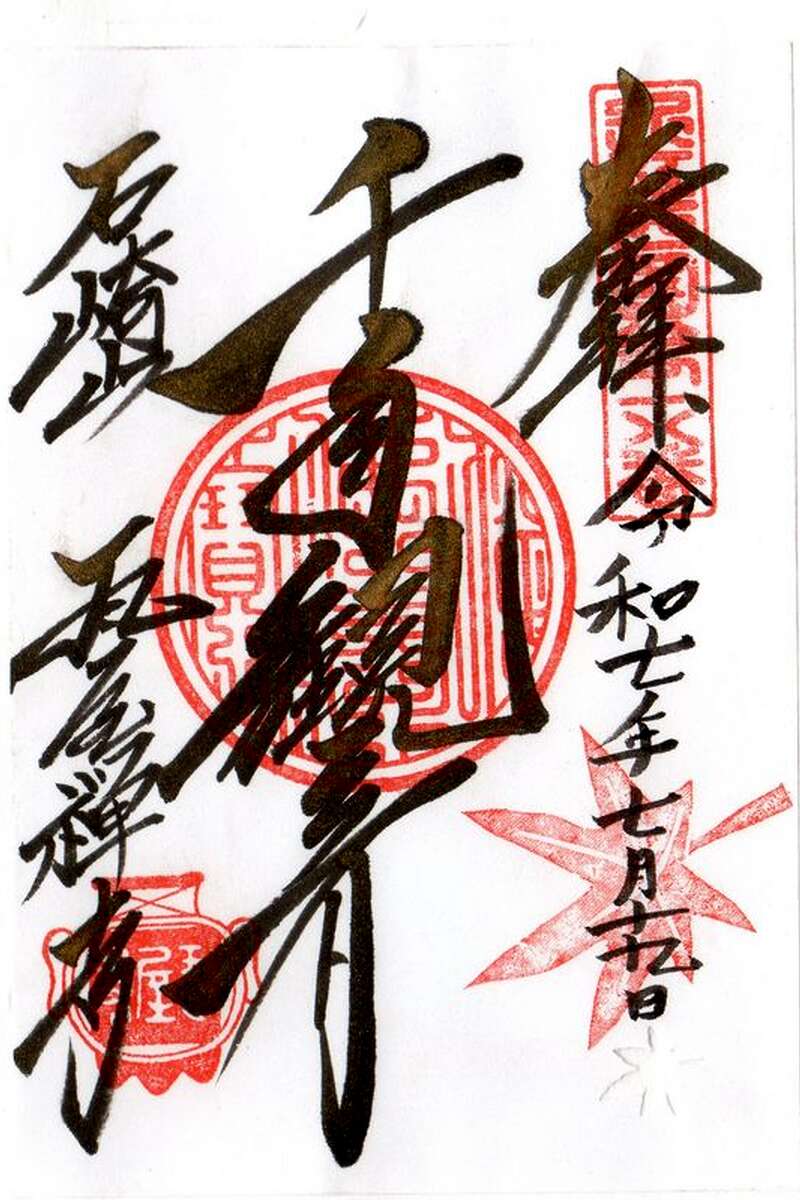 奉拝
令和七年七月十九日
千手観音
石崎山
瓦屋禅寺